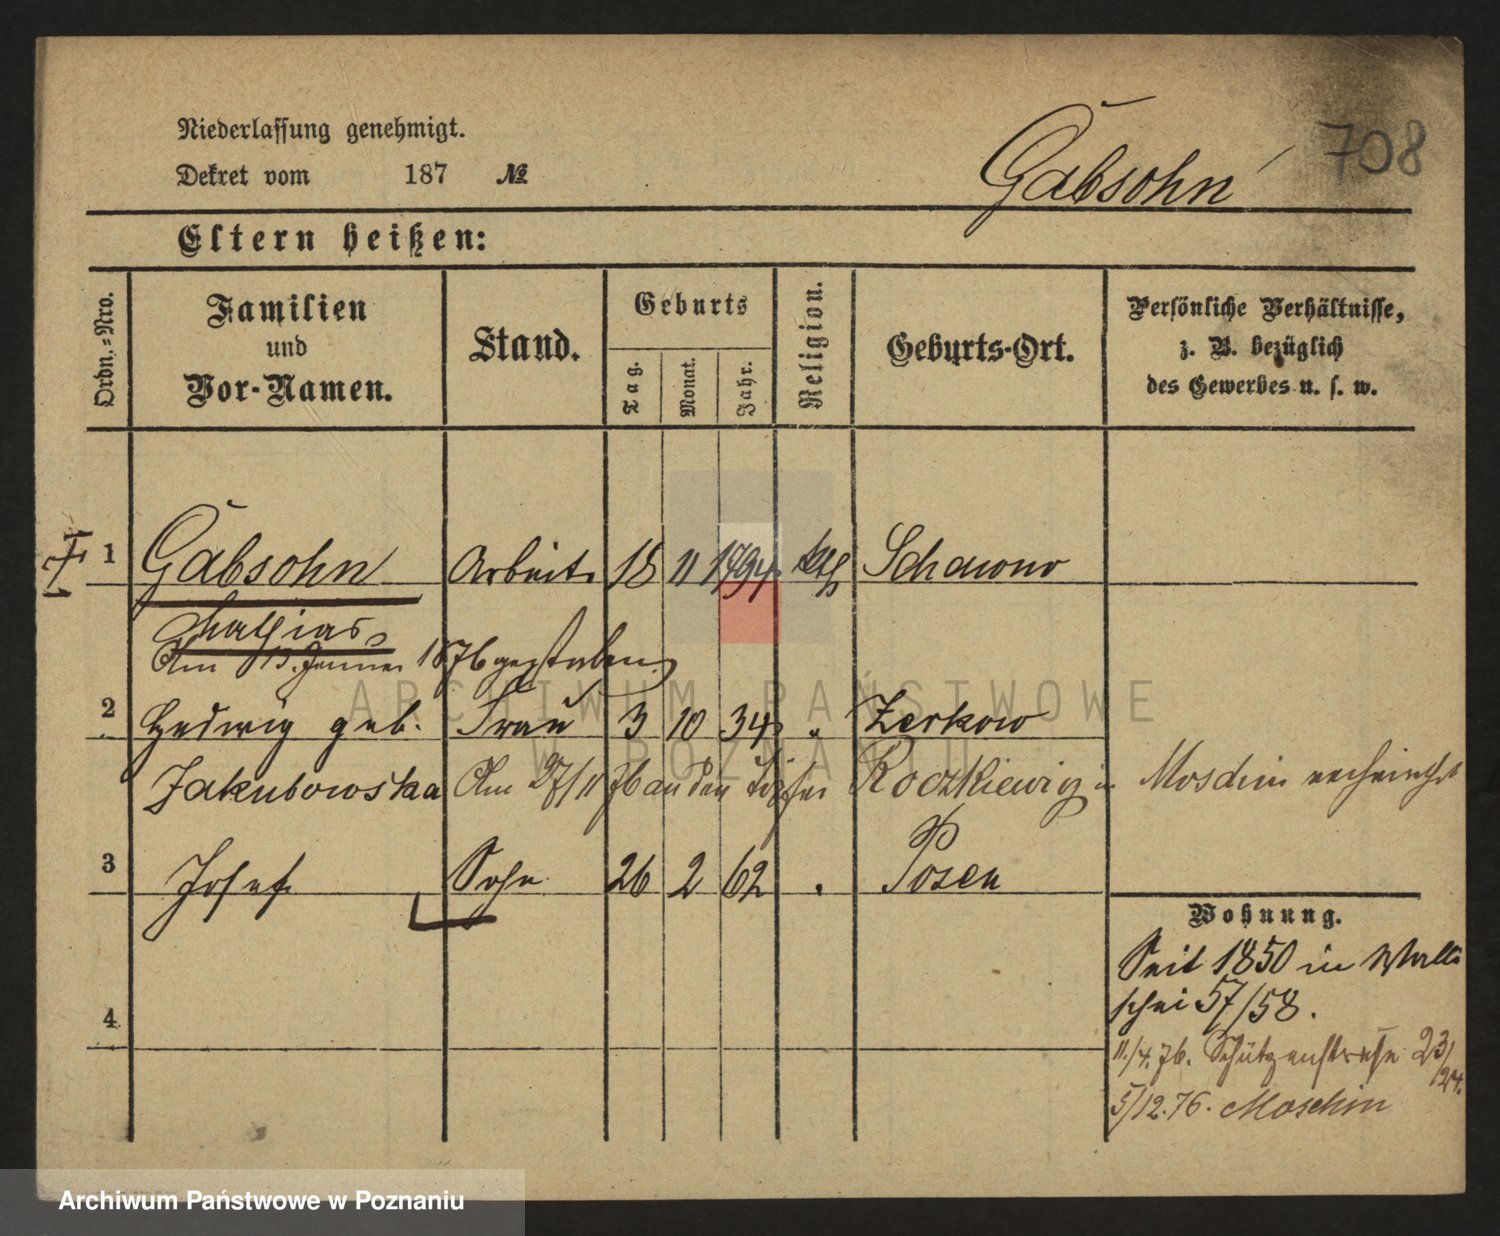 Niederlassung genehmigt.
Dekret vom 187 №
Gabsohn 708
Eltern heißen:
Ordn.-Nro.
Familien und Vor-Namen.
Stand.
Geburts
Tag.
Monat.
Jahr.
Religion.
Geburts-Ort.
Persönliche Verhältnisse,
z. B. bezüglich
des Gewerbes u. s. w.
1 Gabsohn Arbeit. 18 11 1794 kth Schawonv
Mathias
Am 13. Januar 1876 gestorben
2 Hedwig geb. Frau 3 10 34 " Zerkow
Jakubowska Am 27/11 76 an den Roczkiewicz in Moschin verheirathet
3 Josef Sohn 26 2 62 " Posen
Wohnung.
Seit 1850 in Walli
schei 57/58.
4
11./4.76. Schützenstraße 23/
24.
5/12.76. Moschin
ARCHIWUM PAŃSTWOWE
W POZNANIU
Archiwum Państwowe w Poznaniu